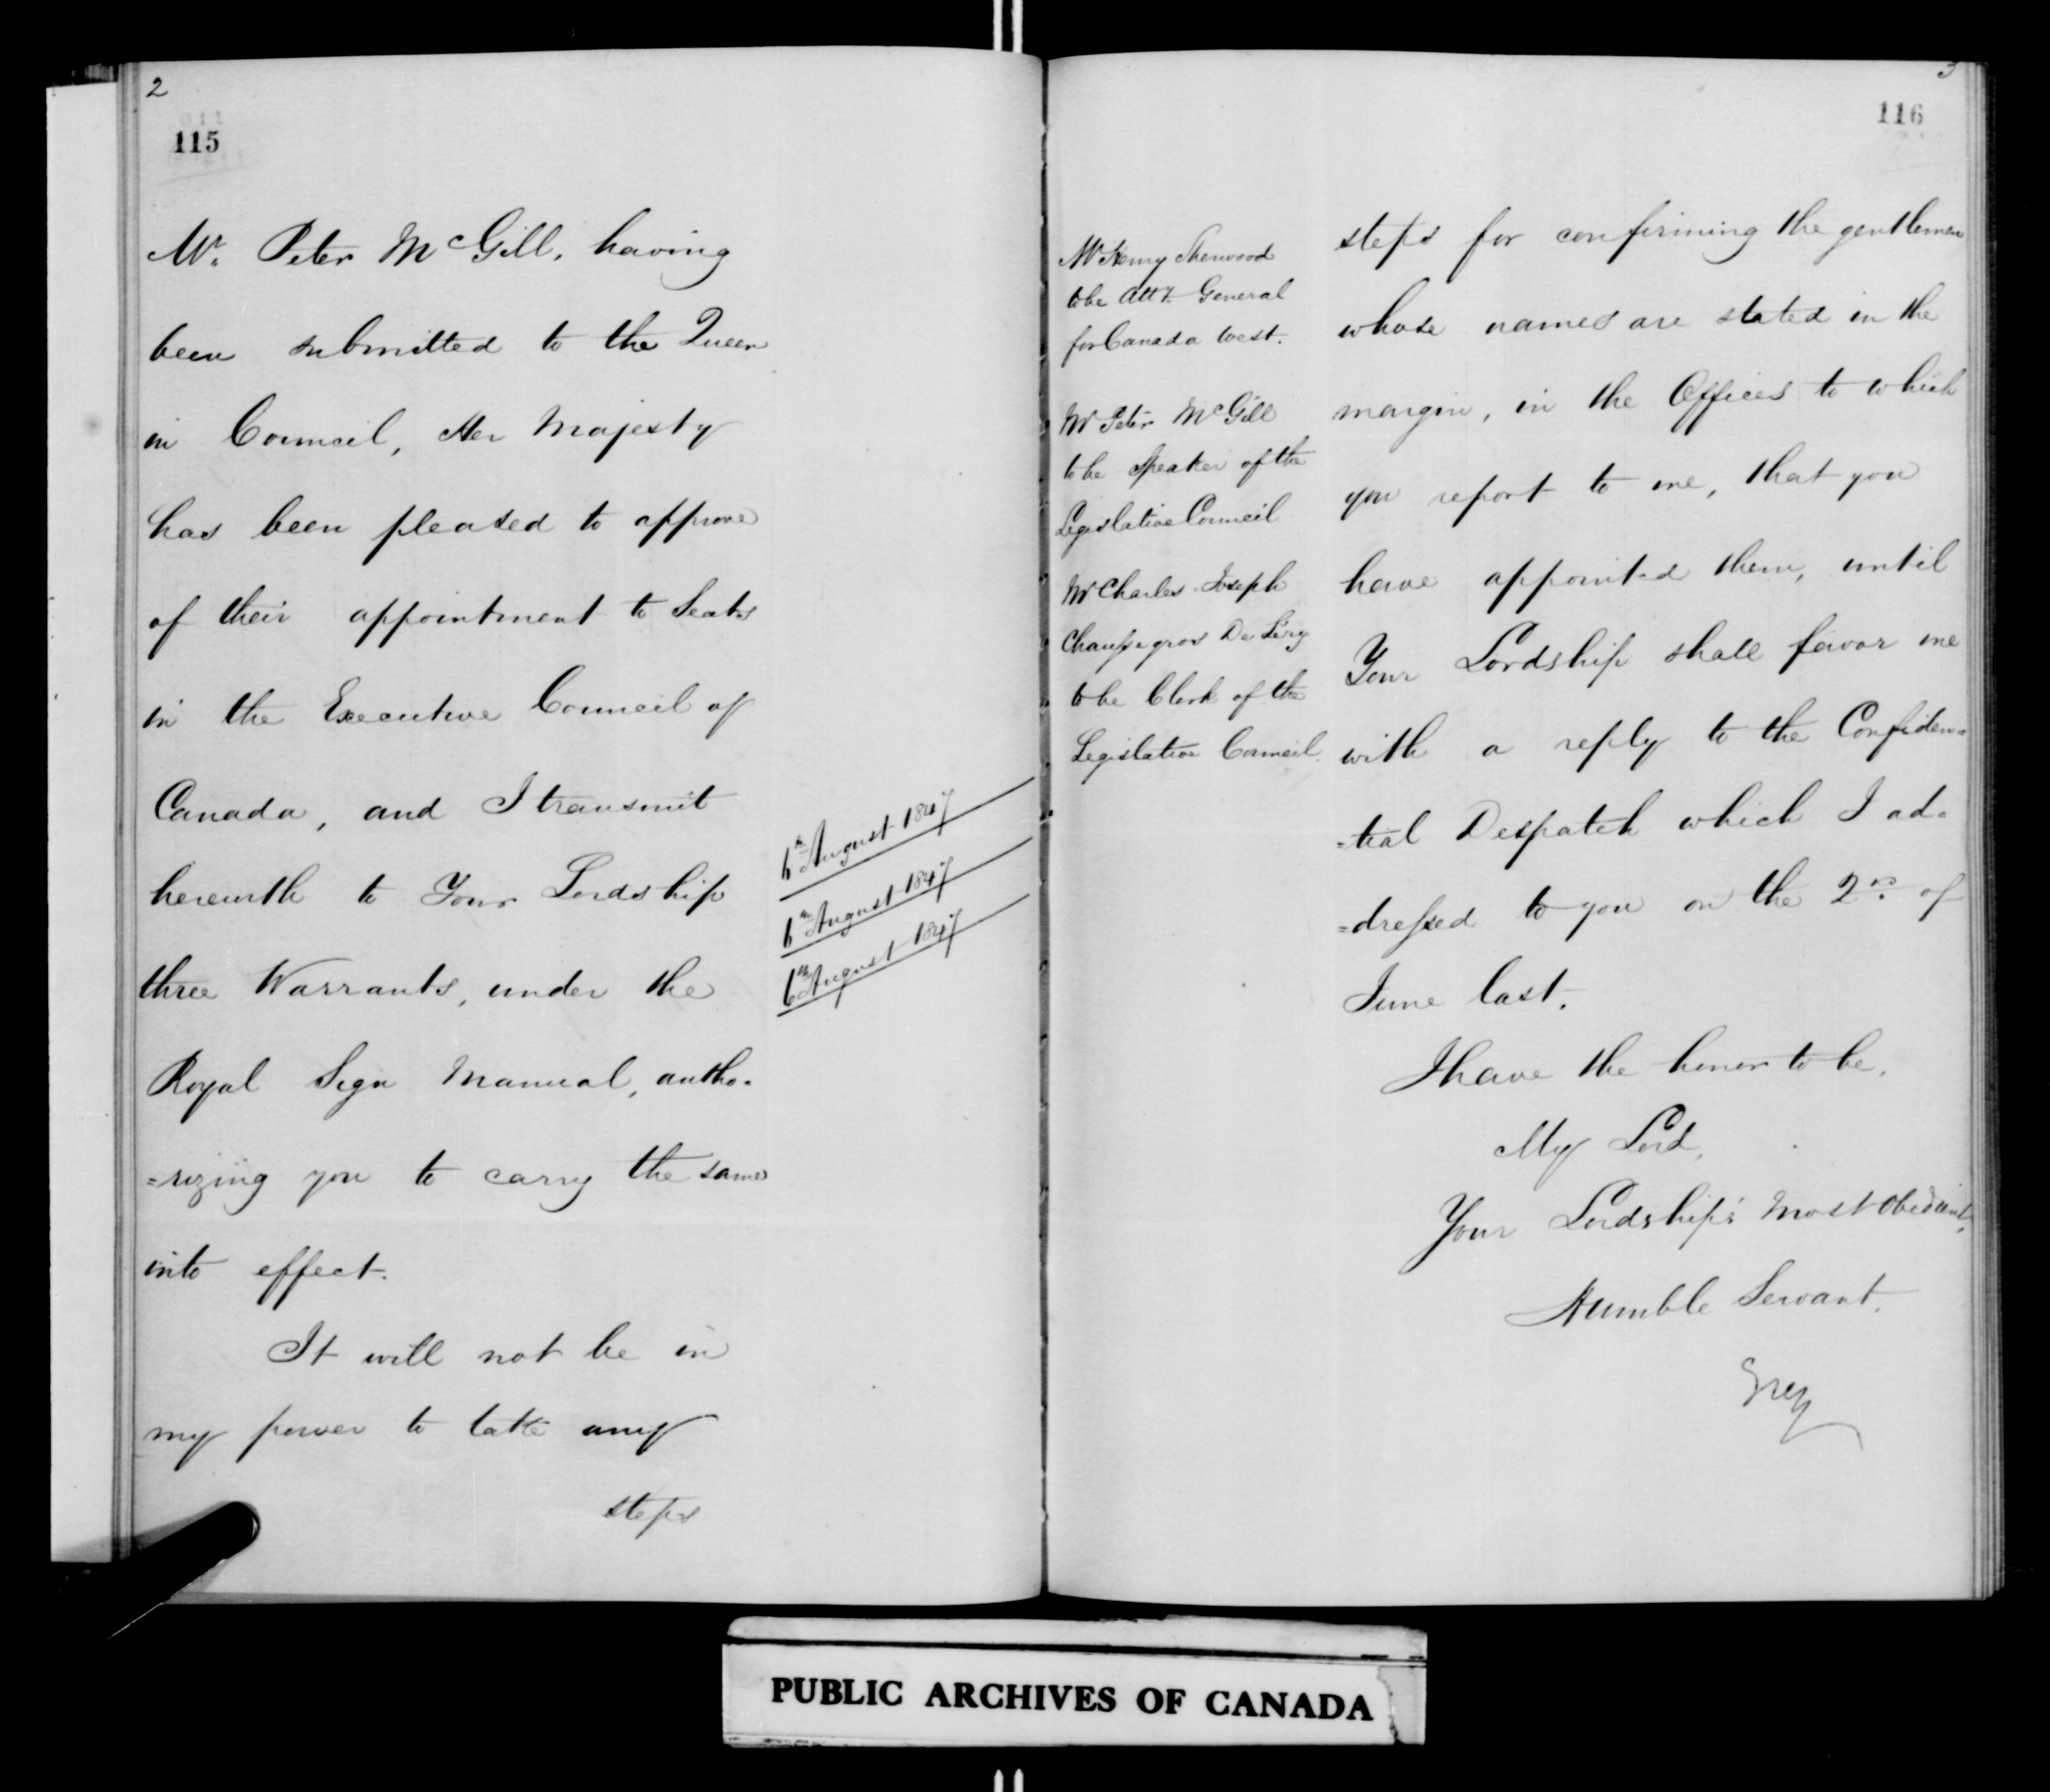 2
115
Mr. Peter McGill, having
been submitted to the Queen
in Council, Her Majesty
has been pleased to approve
of their appointment to Seats
in the Executive Council of
Canada, and I transmit
herewith to Your Lordship
three Warrants, under the
Royal Sign Manual, autho-
=rizing you to carry the same
into effect.
It will not be in
my power to take any
steps
6th August 1847
6th August 1847
6th August 1847
3
116
Mr Henry Sherwood
to be Atty. General
for Canada West.
Mr Peter McGill
to be Speaker of the
Legislative Council
Mr Charles Joseph
Chaussegros De Lery
to be Clerk of the
Legislative Council.
steps for confirming the gentlemen
whose names are stated in the
margin, in the Offices to which
you report to me, that you
have appointed them, until
Your Lordship shall favor me
with a reply to the Confiden=
=tial Despatch which I ad=
=dressed to you on the 2nd of
June last.
I have the honor to be,
My Lord,
Your Lordship's Most Obedient,
Humble Servant,
Grey
PUBLIC ARCHIVES OF CANADA